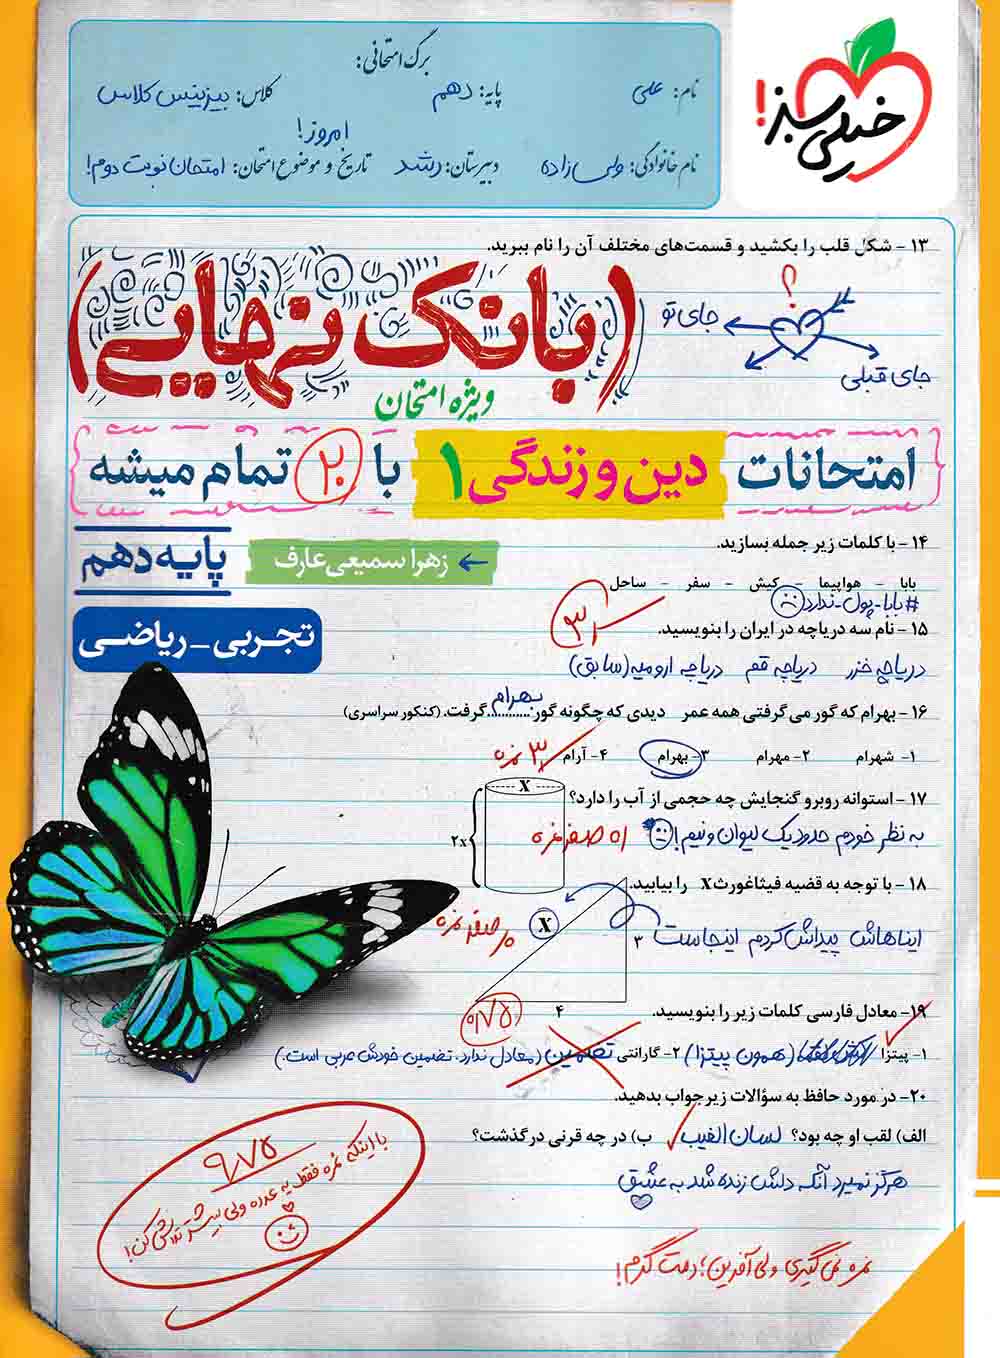 خیلی سبز!
برگ امتحانی:
نام: علی
پایه: دهم
کلاس: بیزینس کلاس
نام خانوادگی: ولی زاده
دبیرستان: رشد
تاریخ و موضوع امتحان: امتحان نوبت دوم!
امروز!
۱۳- شکل قلب را بکشید و قسمت‌های مختلف آن را نام ببرید.
؟
جای تو
جای قبلی
(بانک نهایی)
ویژه امتحان
امتحانات دین و زندگی ۱ با ۲۰ تمام میشه
۱۴- با کلمات زیر جمله بسازید.
بابا - هواپیما - کیش - سفر - ساحل
#بابا-پول-ندارد
زهرا سمیعی عارف
پایه دهم
تجربی - ریاضی
۱۵- نام سه دریاچه در ایران را بنویسید.
دریاچه خزر دریاچه قم دریاچه ارومیه (سابق)
۱۶- بهرام که گور می‌گرفتی همه عمر دیدی که چگونه گور بهرام گرفت. (کنکور سراسری)
۱- شهرام ۲- مهرام ۳- بهرام ۴- آرام
۱۷- استوانه روبرو گنجایش چه حجمی از آب را دارد؟
x
2x
به نظر خودم حدود یک لیوان و نیم!
صفر نمره
۱۸- با توجه به قضیه فیثاغورث x را بیابید.
ایناهاش پیداش کردم اینجاست
x
۳
۴
صفر نمره
۱۹- معادل فارسی کلمات زیر را بنویسید.
۰/۷۵
۱- پیتزا (همون پیتزا) ۲- گارانتی تضمین (معادل ندارد. تضمین خودش عربی است.)
۲۰- در مورد حافظ به سؤالات زیر جواب بدهید.
الف) لقب او چه بود؟ لسان الغیب ب) در چه قرنی درگذشت؟
هرگز نمیرد آنکه دلش زنده شد به عشق
نمره نمی‌گیری ولی آفرین؛ دمت گرم!
۹/۷۵
با اینکه نمره فقط یه عدده ولی بیشتر تلاش کن!